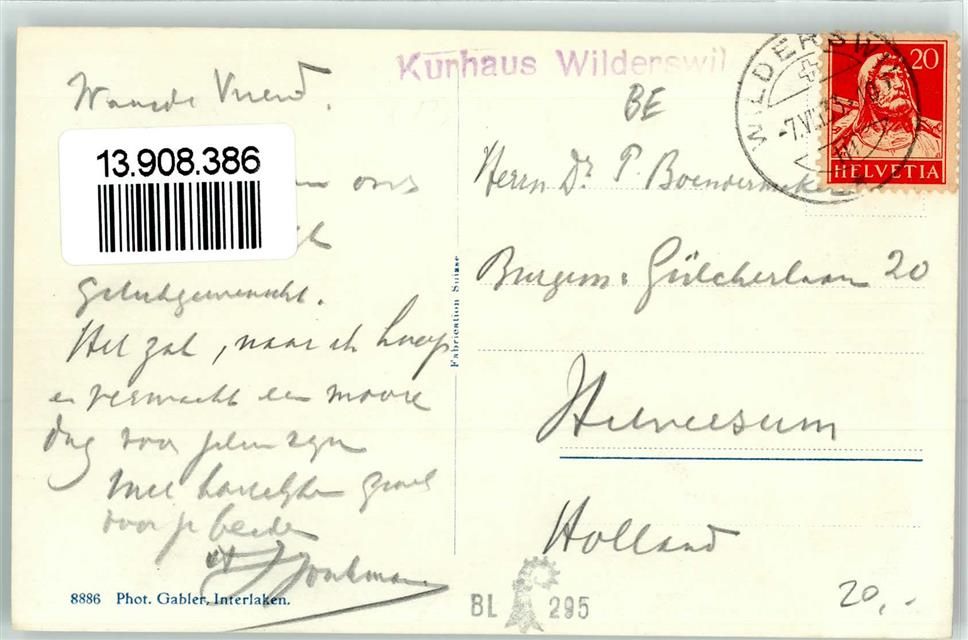 Kurhaus Wilderswil
WILDERSWIL
20
HELVETIA
BE
Waarde Vriend.
13.908.386
ons
gelukgewenscht.
Het zal, naar ik hoop
en verwacht een mooie
dag voor jelui zijn
Met hartelijken groet
voor je beiden
Herrn Dr. P. Boendermaker
Burgem. Gülcherlaan 20
Hilversum
Holland
Fabrication Suisse
8886 Phot. Gabler, Interlaken.
BL 295
20,-